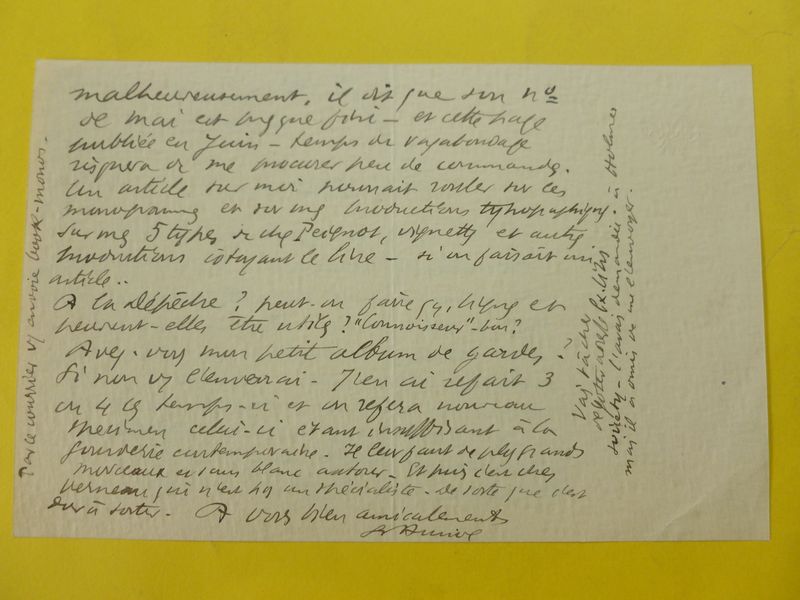 malheureusement, il dit que son nº
de mai est presque fini – et cette page
publiée en Juin – temps du vagabondage
risquera de me procurer peu de commande.
Un article sur moi pourrait rouler sur ces
monogrammes et sur mes productions typographiques
sur mes 5 types de chez Peignot, vignettes et autres
productions côtoyant le livre – si on faisait un
article..
A la Dépêche ? peut-on faire 
peuvent-elles être utiles ? "Connoisseur" – bon ?
Avez-vous mon petit album de gardes ?
Si non vs l'enverrai – J'en ai refait 3
ou 4 ces temps-ci et on refera nouveau
specimen celui-ci étant insuffisant à la
contemporaine. Il leur faut de plus grands
morceaux et sans blanc autour. Et puis c'est chez
Verneau qui n'est pas un spécialiste. De sorte que c'est
dur à sortir. A vous bien amicalement
G Auriol
Par ce courrier vs envoie book-monos.
Vais tâcher
Ex-Libris
society – l'avais demandée à Holmes
mais il a omis de me l'envoyer.